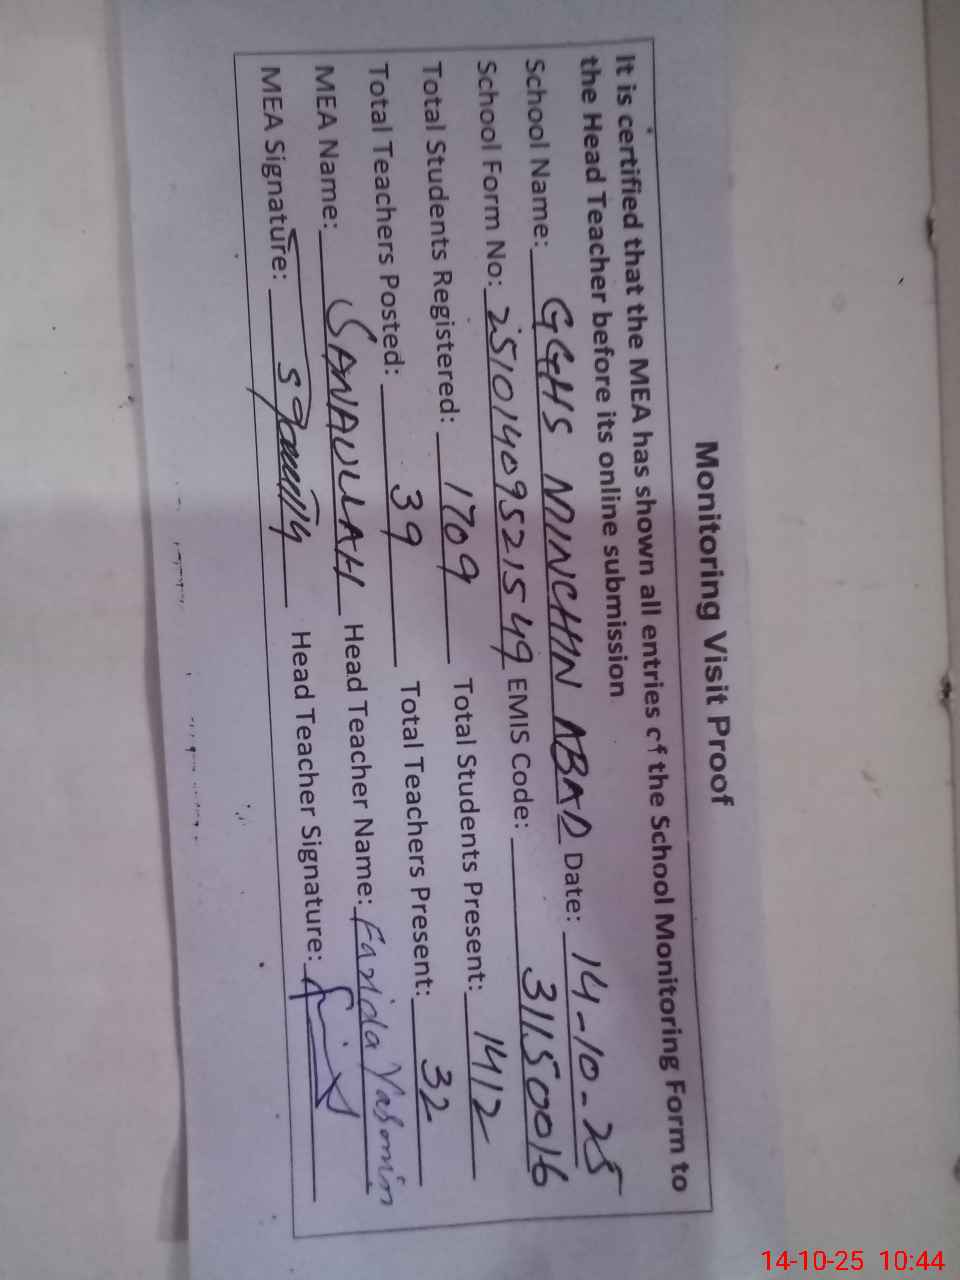 Monitoring Visit Proof
It is certified that the MEA has shown all entries of the School Monitoring Form to
the Head Teacher before its online submission
School Name: GGHS MINCHN ABAD Date: 14-10-25
School Form No: 25101409521549 EMIS Code: 31150016
Total Students Registered: 1709 Total Students Present: 1412
Total Teachers Posted: 39 Total Teachers Present: 32
MEA Name: SANAULLAH Head Teacher Name: Farida Yasmin
MEA Signature: Head Teacher Signature:
14-10-25 10:44